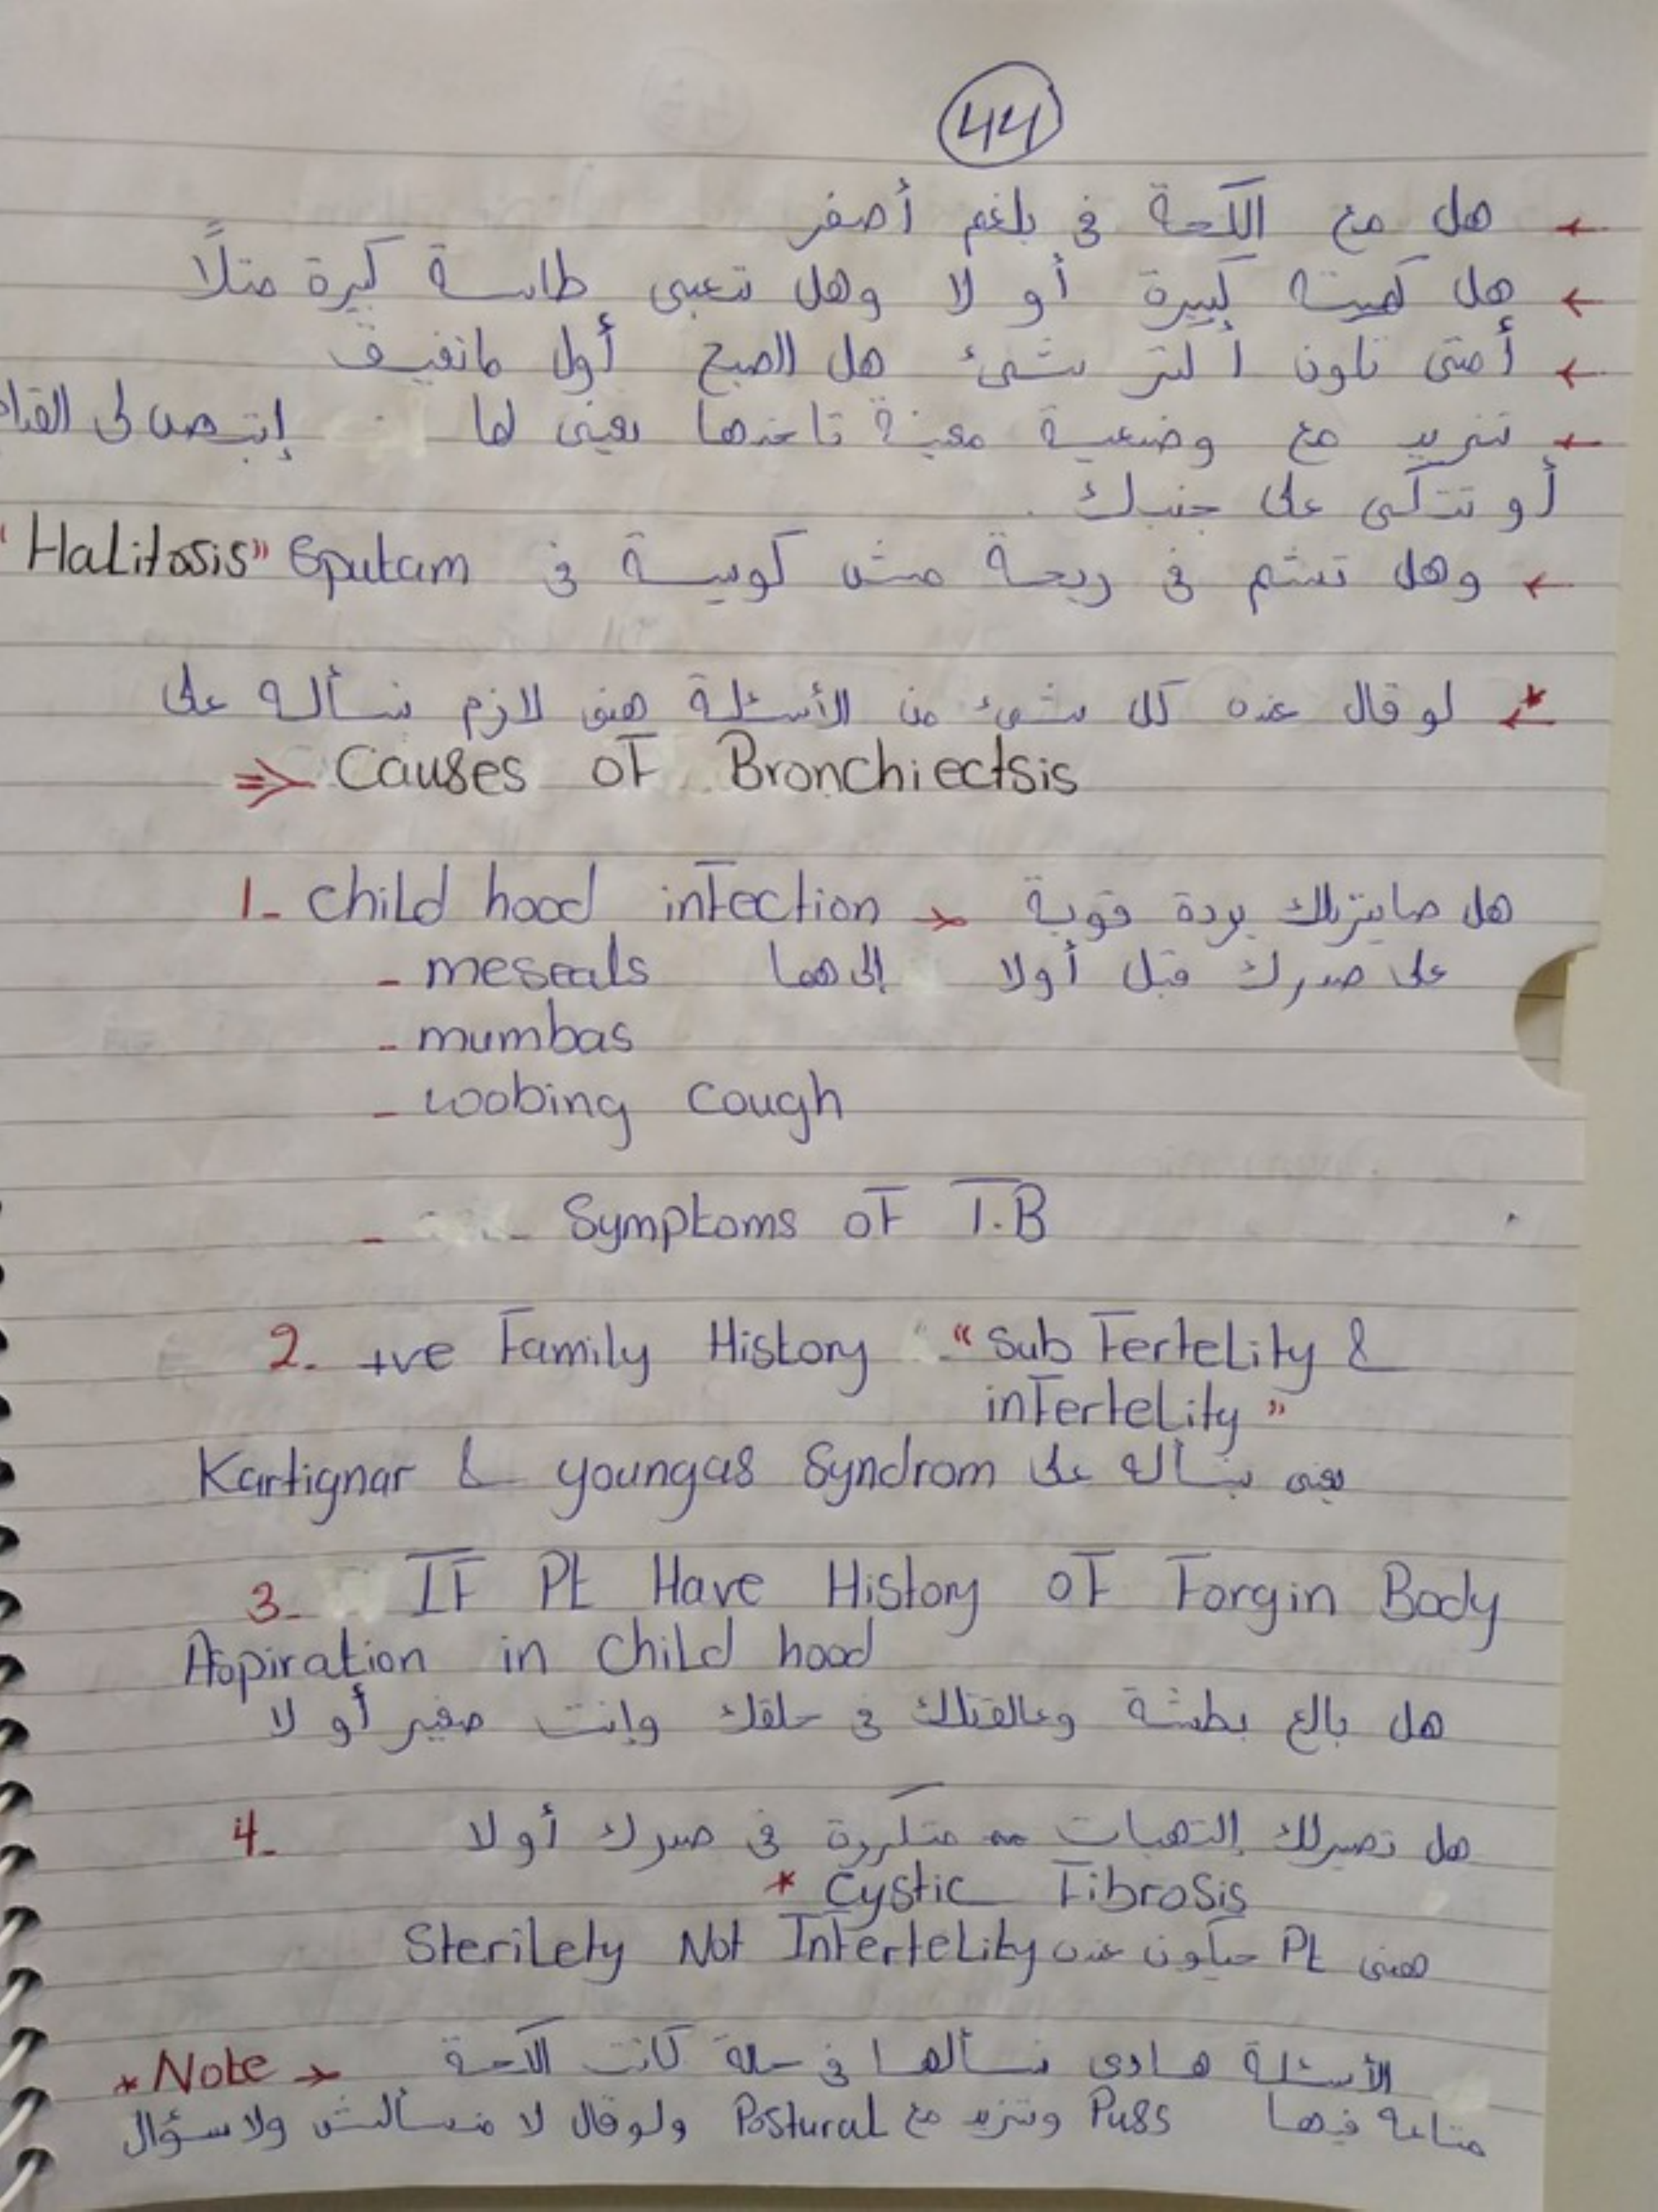 44
← هل مع الكحة في بلغم أصفر
← هل كميته كبيرة أو لا وهل تعبى طاسة كبيرة مثلاً
← أمتى تكون أكتر شيء هل الصبح أول ماتفيق
← تزيد مع وضعية معينة تاخدها يعني لما إتبصى لى القدا
أو تتكى على جنبك.
← وهل تشم في ريحة مش كويسة في Sputam "Halitosis"
* لو قال عنده كل شيء من الأسئلة هنى لازم نسأله على
⇒ Causes of Bronchiectsis
1- child hood infection → هل صايرلك بردة قوية
- meseals على صدرك قبل أولا إلى هما
- mumbas
- woobing cough
- Symptoms of T.B
2. +ve Family History "Sub Fertelity &
infertelity"
يعني نسأله على Kartignar & youngas Syndrom
3- IF Pt Have History of Forgin Body
Aspiration in child hood
هل بالع بطشة وعالقتلك في حلقك وإنت صغير أو لا
4- هل تصيرلك إلتهبات متكررة في صدرك أولا
* Cystic Fibrosis
همنى Pt حيكون عنده Sterilety Not Infertelity
* Note → الأسئلة هادى نسألها في حالة كانت الكحة
متاعه فيها Puss وتزيد مع Postural ولو قال لا منسألش ولا سؤال